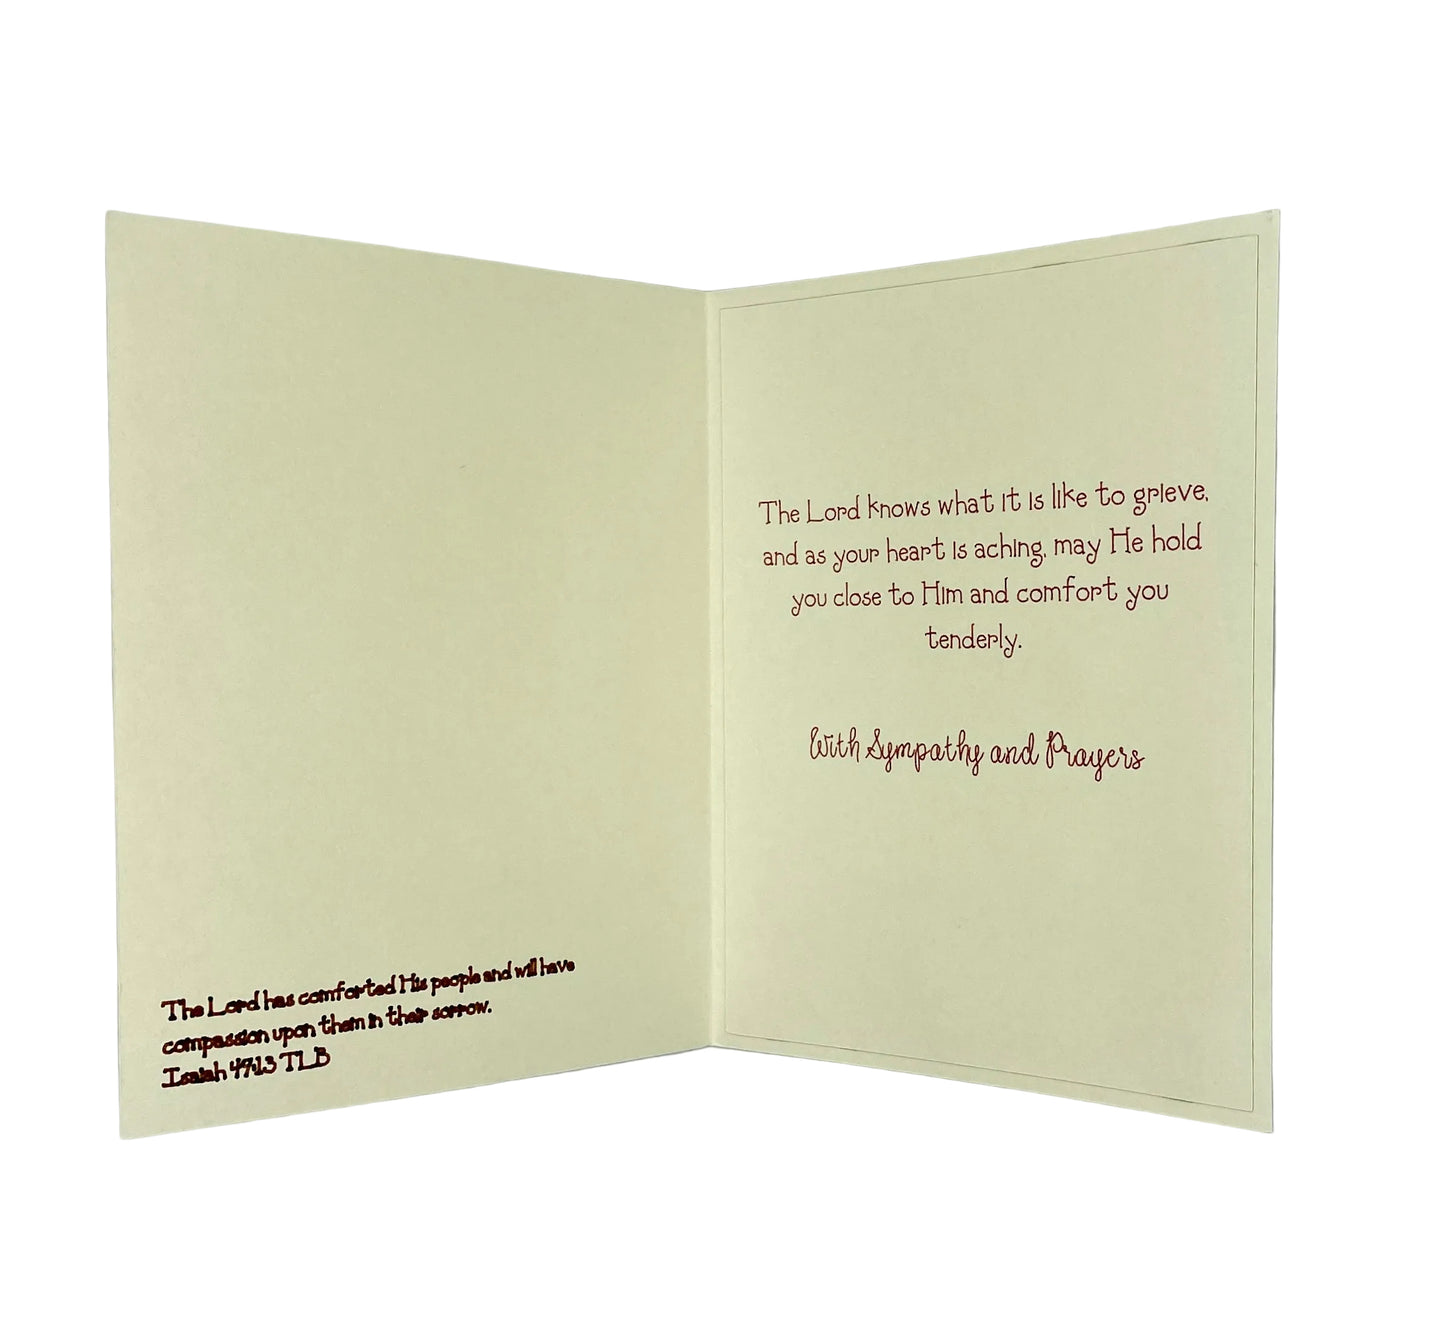 The Lord has comforted His people and will have
compassion upon them in their sorrow.
Isaiah 49:13 TLB
The Lord knows what it is like to grieve,
and as your heart is aching, may He hold
you close to Him and comfort you
tenderly.
With Sympathy and Prayers